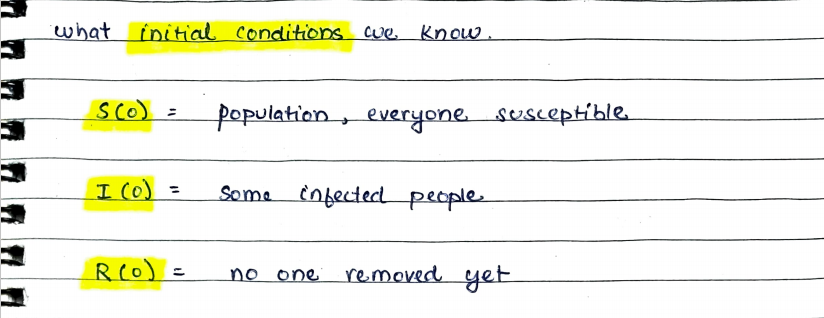 what initial conditions we know.
S(0) = population, everyone susceptible
I(0) = some infected people
R(0) = no one removed yet